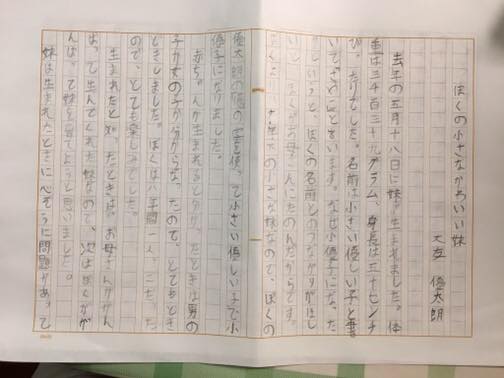 ぼくの小さなかわいい妹
大 優太朗
去年の五月十八日に妹が生まれました。体
重は三千百三十九グラム、身長は五十センチ
ぴったりでした。名前は小さい優しい子と書
いてさゆこといいます。なぜ小優子になった
かというと、ぼくの名前とのつながりがほし
いと ぼくがお母さんにたのんだからです。
の小さな妹なので、ぼくの
優太朗の優の字を使って小さい優しい子で小
優子になりました。
赤ちゃんが生まれると分かったときは男の
子か女の子か分からなかったので、とてもどき
どきしました。ぼくは八年間一人っこだった
ので、とても楽しみでした。
生まれたと知ったときは、お母さんががん
ばって生んでくれた妹なので、次はぼくががん
ばって妹を育てようと思いました。
妹は生まれたときに心ぞうに問題があって